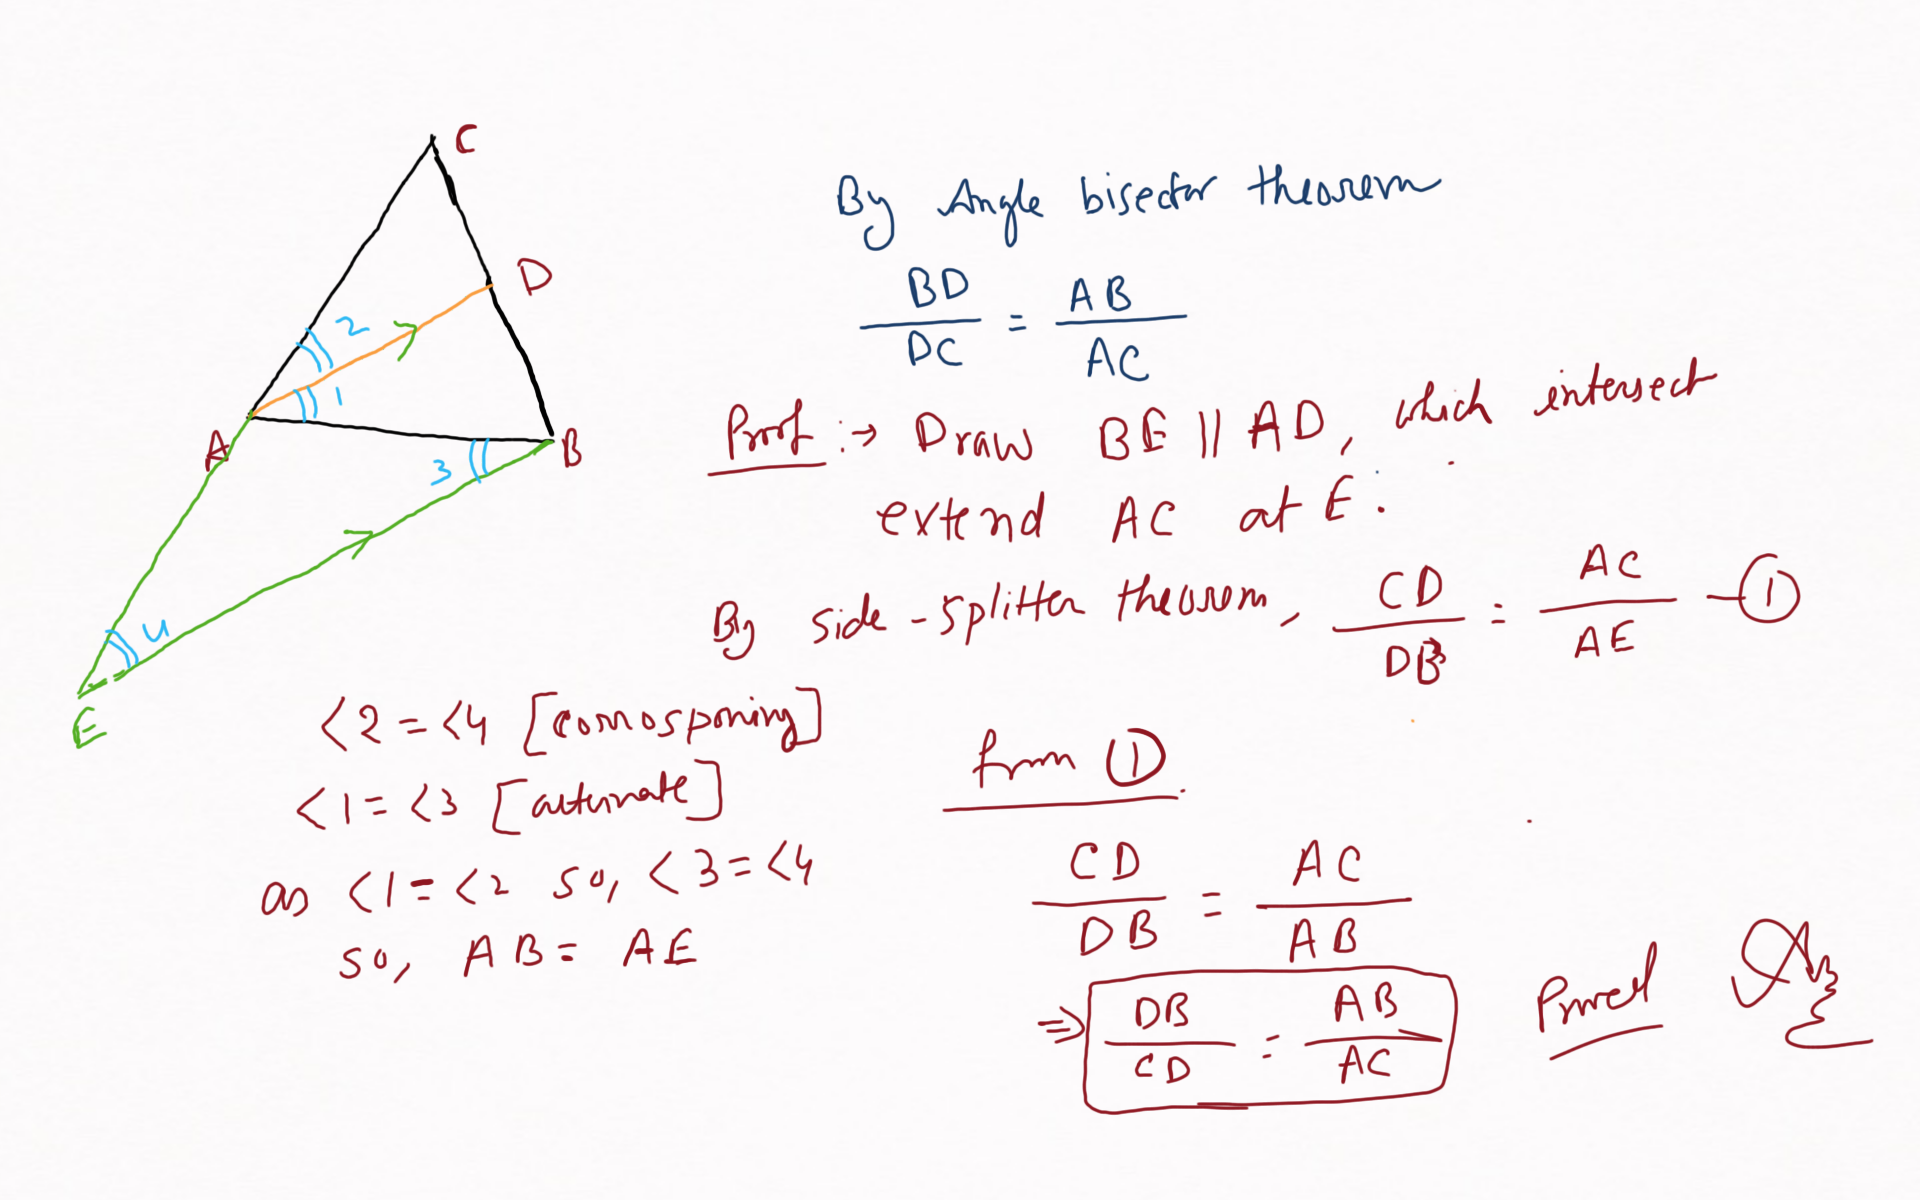 C
D
2
1
A
B
3
4
E
By Angle bisector theorem
BD/DC = AB/AC
Proof :→ Draw BE || AD, which intersect
extend AC at E.
By side-splitter theorem, CD/DB = AC/AE —①
<2 = <4 [corrosponing]
<1 = <3 [alternate]
as <1 = <2 so, <3 = <4
so, AB = AE
from ①
CD/DB = AC/AB
⇒ DB/CD = AB/AC
Proved